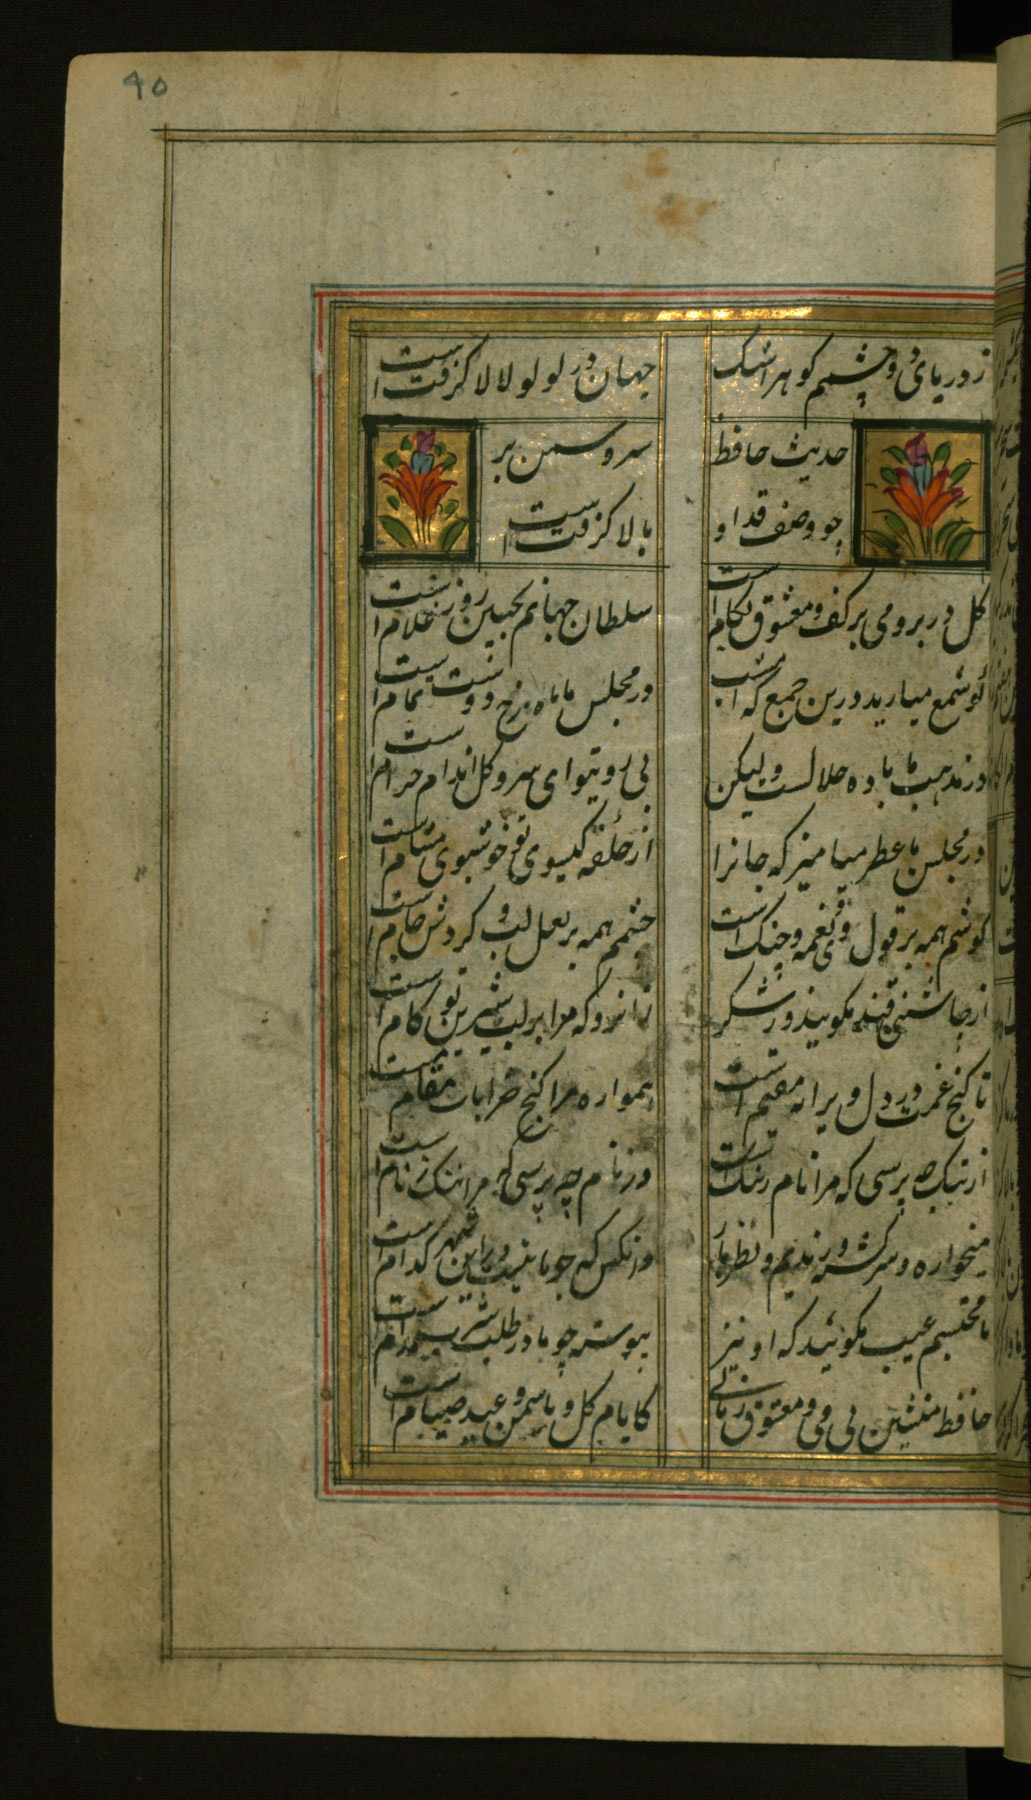 ۴۵
ز دریای دو چشمم کوهر اشک جهان در لولو لالا کرفت است
حدیث حافظ سرو سمن بر
چو وصف قد او بالا کرفت است
کل در بر و می بر کف و معشوق بکام است سلطان جهانم بچنین روز غلام است
کو شمع میارید درین جمع که امشب در مجلس ما ماه رخ دوست تمام است
در مذهب ما باده حلالست ولیکن بی روی تو ای سرو کل اندام حرام است
در مجلس ما عطر میامیز که جانرا از حلقه کیسوی تو خوشبوی مشام است
کوشم همه بر قول نی و نغمه چنک است چشمم همه بر لعل لب و کردش جام است
از چاشنی قند مکوئید و ز شکر زانرو که مرا بر لب شیرین تو کام است
تا کنج غمت در دل ویرانه مقیم است همواره مرا کنج خرابات مقام است
از ننک چه پرسی که مرا نام ز ننک است وز نام چه پرسی که مرا ننک ز نام است
میخواره و سرکشته و رندیم و نظر باز وانکس که چو ما نیست در این شهر کدام است
با محتسبم عیب مکوئید که او نیز پیوسته چو ما در طلب شرب مدام است
حافظ منشین بی می و معشوق زمانی کایام کل و یاسمن و عید صیام است